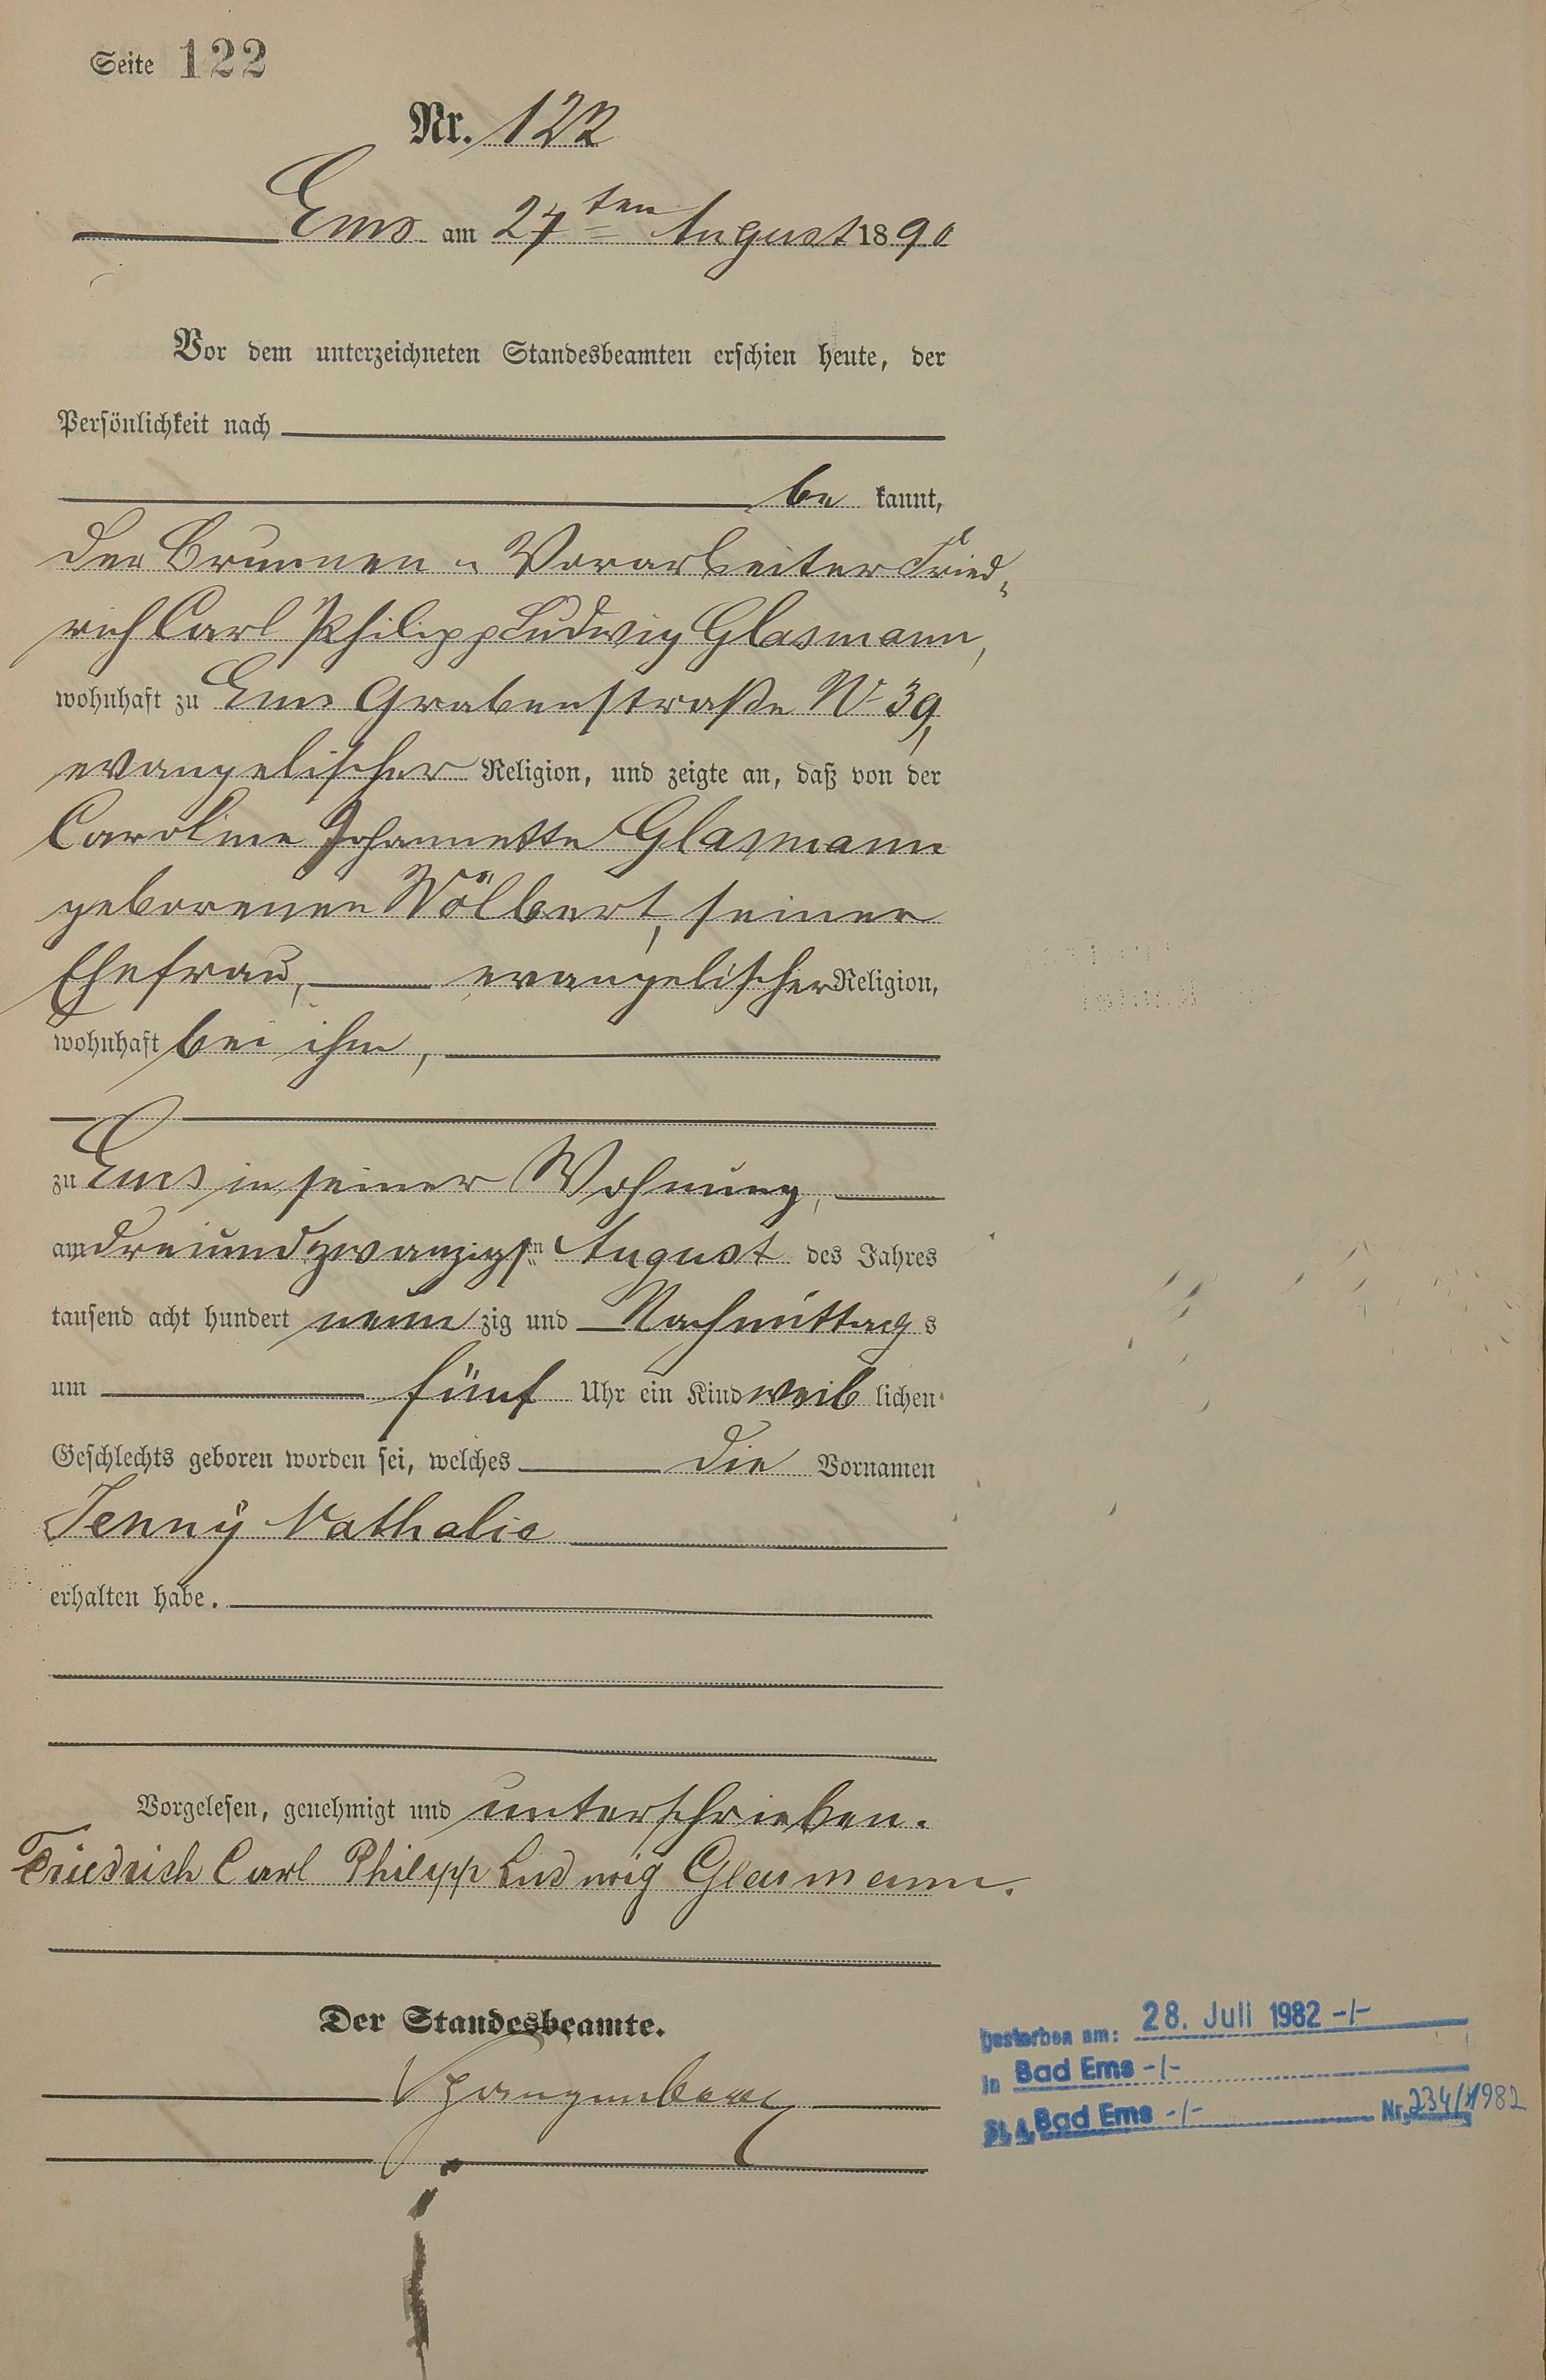 Seite 122
Nr. 122
Ems am 27ten August 1890
Vor dem unterzeichneten Standesbeamten erschien heute, der
Persönlichkeit nach
be kannt,
der Brunnen-Vorarbeiter Fried-
rich Carl Philipp Ludwig Glasmann,
wohnhaft zu Ems Grabenstraße No 39,
evangelischer Religion, und zeigte an, daß von der
Caroline Johannette Glasmann
geborenen Wölbert, seiner
Ehefrau, evangelischer Religion,
wohnhaft bei ihm,
zu Ems in seiner Wohnung,
am dreiundzwanzigsten August des Jahres
tausend acht hundert neun zig und Nachmittag s
um fünf Uhr ein Kind weib lichen
Geschlechts geboren worden sei, welches die Vornamen
Jennÿ Nathalie
erhalten habe.
Vorgelesen, genehmigt und unterschrieben.
Friedrich Carl Philipp Ludwig Glasmann.
Der Standesbeamte.
Spangenberg
gestorben am: 28. Juli 1982 -/-
in Bad Ems -/-
St. A. Bad Ems -/- Nr. 234/1982